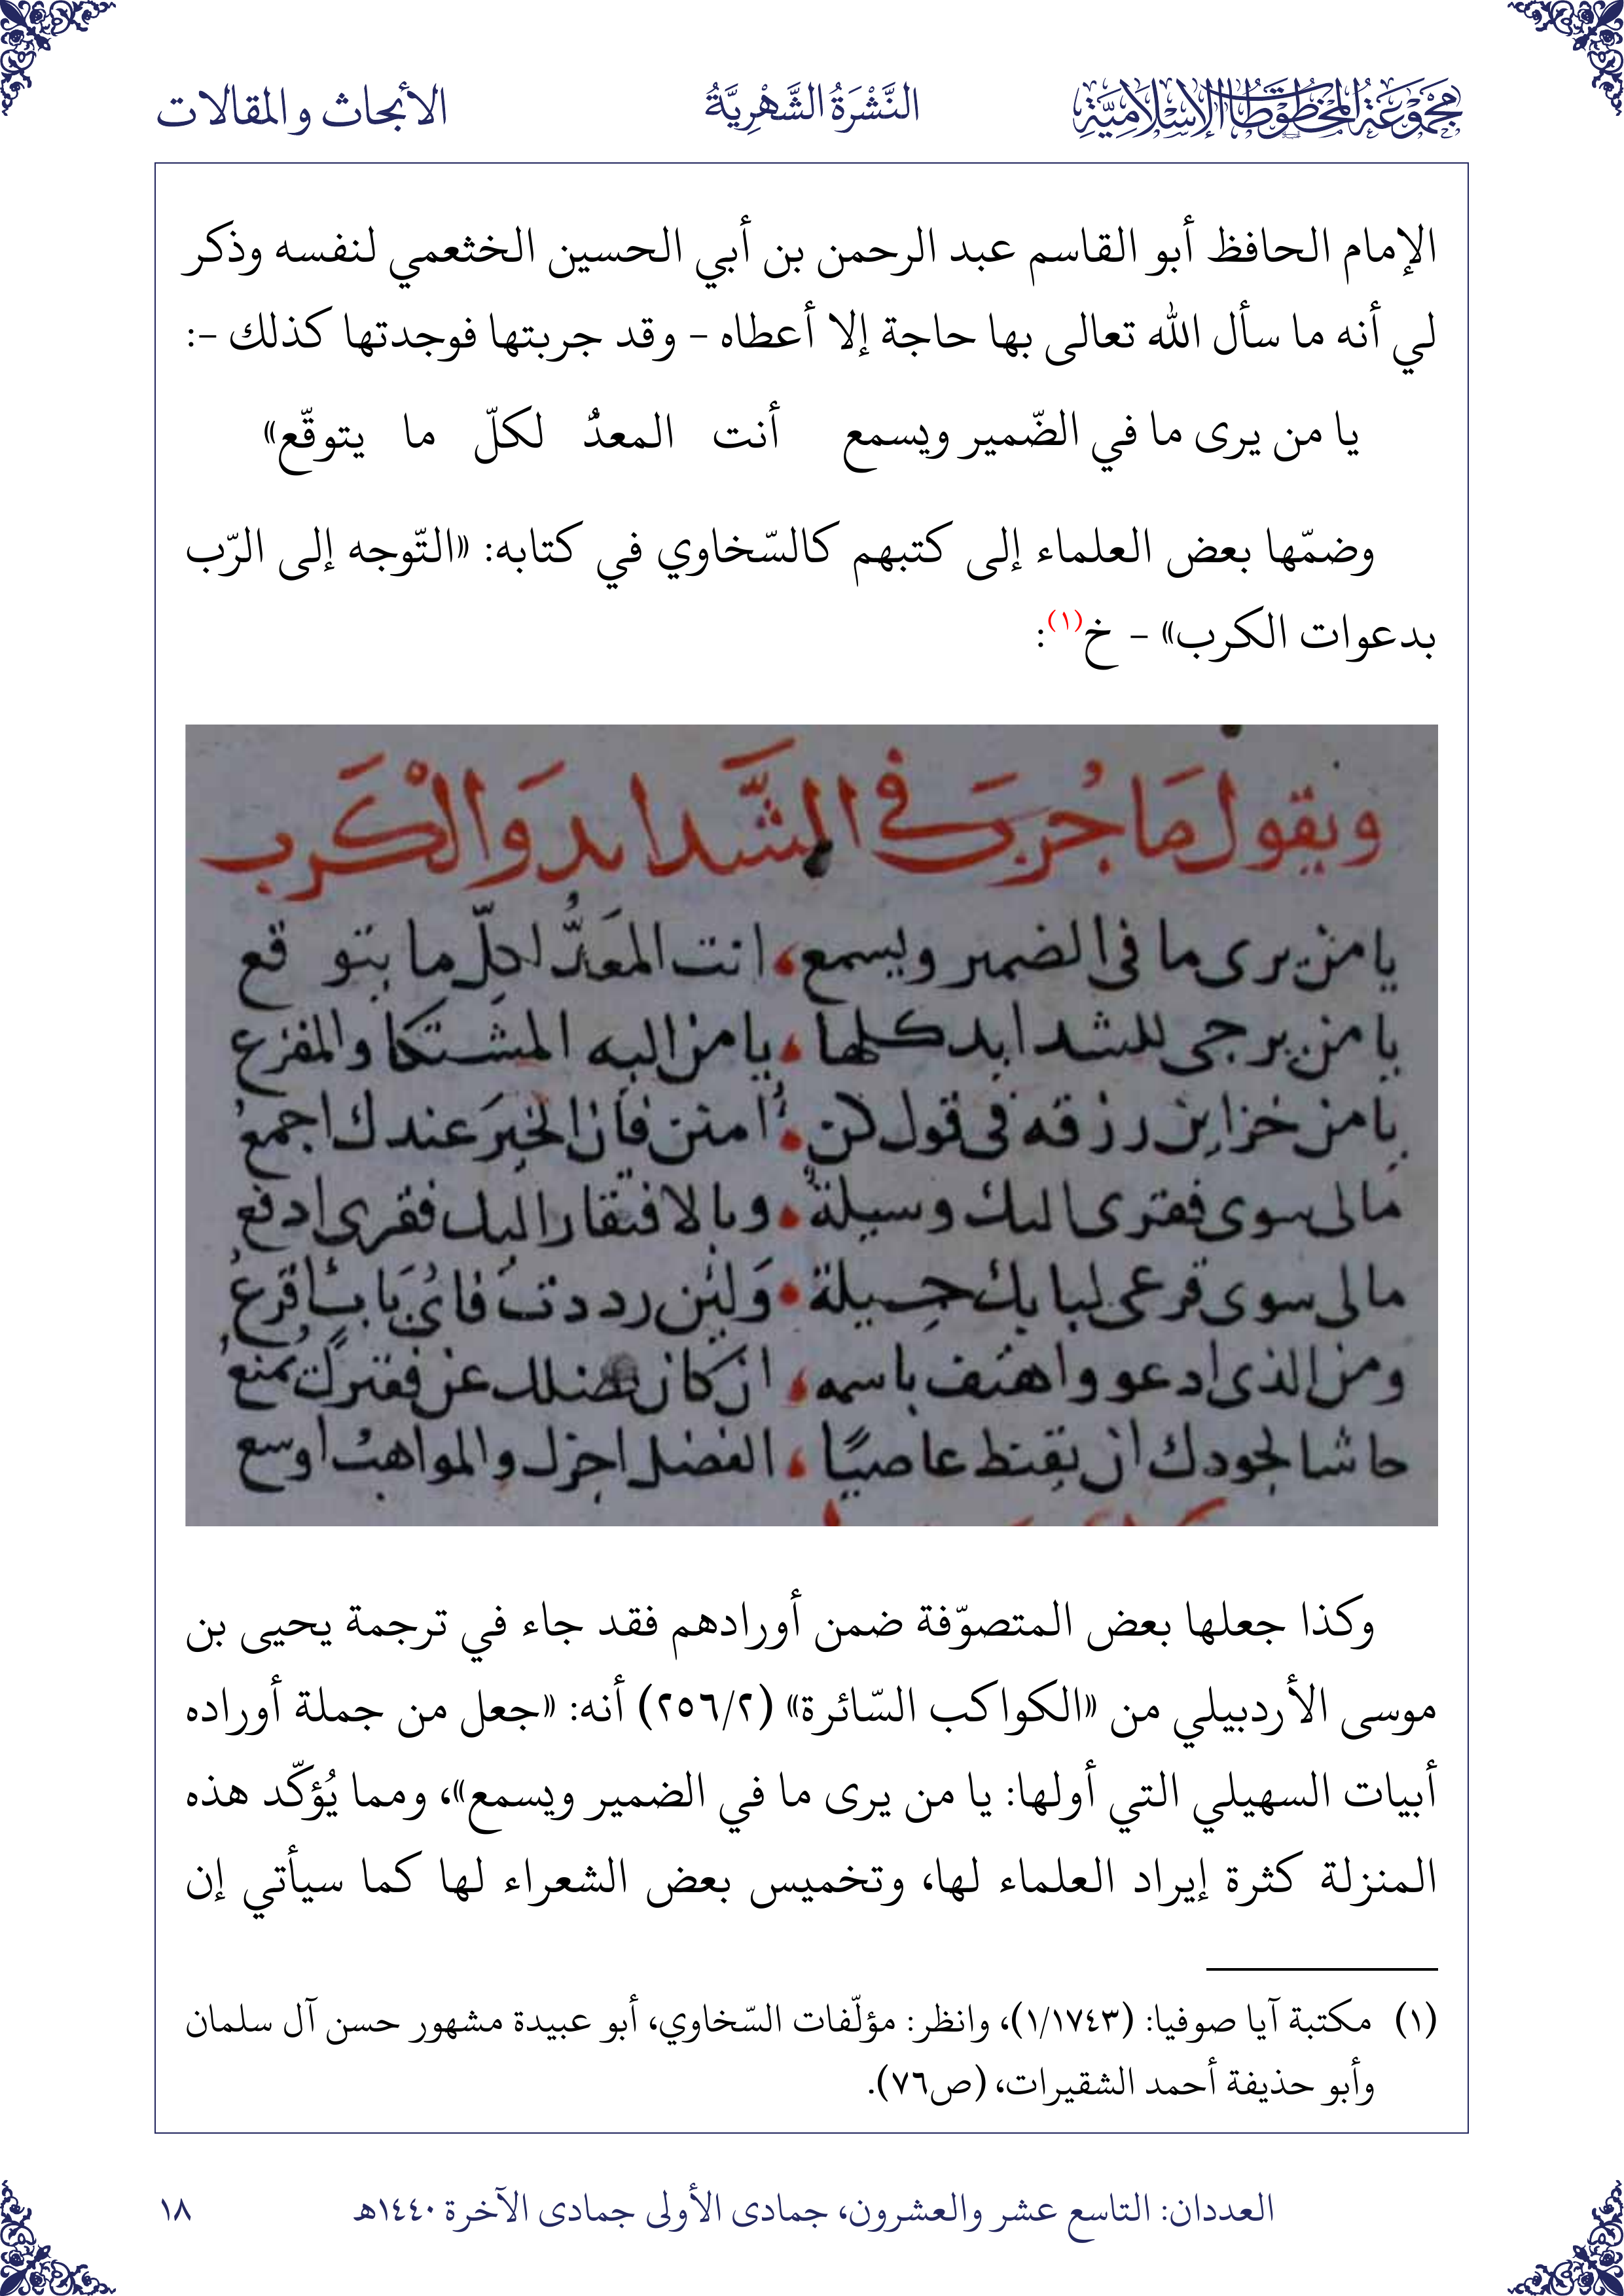 مجموعة المخطوطات الإسلامية
النَّشْرَةُ الشَّهْرِيَّةُ
الأبحاث والمقالات
الإمام الحافظ أبو القاسم عبد الرحمن بن أبي الحسين الخثعمي لنفسه وذكر
لي أنه ما سأل الله تعالى بها حاجة إلا أعطاه – وقد جربتها فوجدتها كذلك –:
يا من يرى ما في الضّمير ويسمع أنت المعدُّ لكلّ ما يتوقّع»
وضمّها بعض العلماء إلى كتبهم كالسّخاوي في كتابه: «التّوجه إلى الرّب
بدعوات الكرب» – خ(١):
ويقول مَا جُربَ في الشَّدايد وَالْكَرب
يا من يرى ما في الضمير ويسمع، انت المعَدُّ لكلّ ما يتوقع
يا من يرجى للشدايد كلها، يا من اليه المشتكا والمفزع
يا من خزاين رزقه في قول كن، امنن فان الخيرَ عندك اجمع
مالى سوى فقرى اليك وسيلة، وبالافتقار اليك فقرى ادفع
مالى سوى قرعى لبابك حيلة، وَلئن رددتُ فاىُّ بَابٍ اقرعُ
ومن الذى ادعو واهتف باسمه، ان كان فضلك عن فقيرك يمنع
حاشا لجودك ان يقنط عاصيًا، الفضل اجزل والمواهب اوسع
وكذا جعلها بعض المتصوّفة ضمن أورادهم فقد جاء في ترجمة يحيى بن
موسى الأردبيلي من «الكواكب السّائرة» (٢٥٦/٢) أنه: «جعل من جملة أوراده
أبيات السهيلي التي أولها: يا من يرى ما في الضمير ويسمع»، ومما يُؤكّد هذه
المنزلة كثرة إيراد العلماء لها، وتخميس بعض الشعراء لها كما سيأتي إن
(١) مكتبة آيا صوفيا: (١/١٧٤٣)، وانظر: مؤلّفات السّخاوي، أبو عبيدة مشهور حسن آل سلمان
وأبو حذيفة أحمد الشقيرات، (ص٧٦).
العددان: التاسع عشر والعشرون، جمادى الأولى جمادى الآخرة ١٤٤٠هـ
١٨